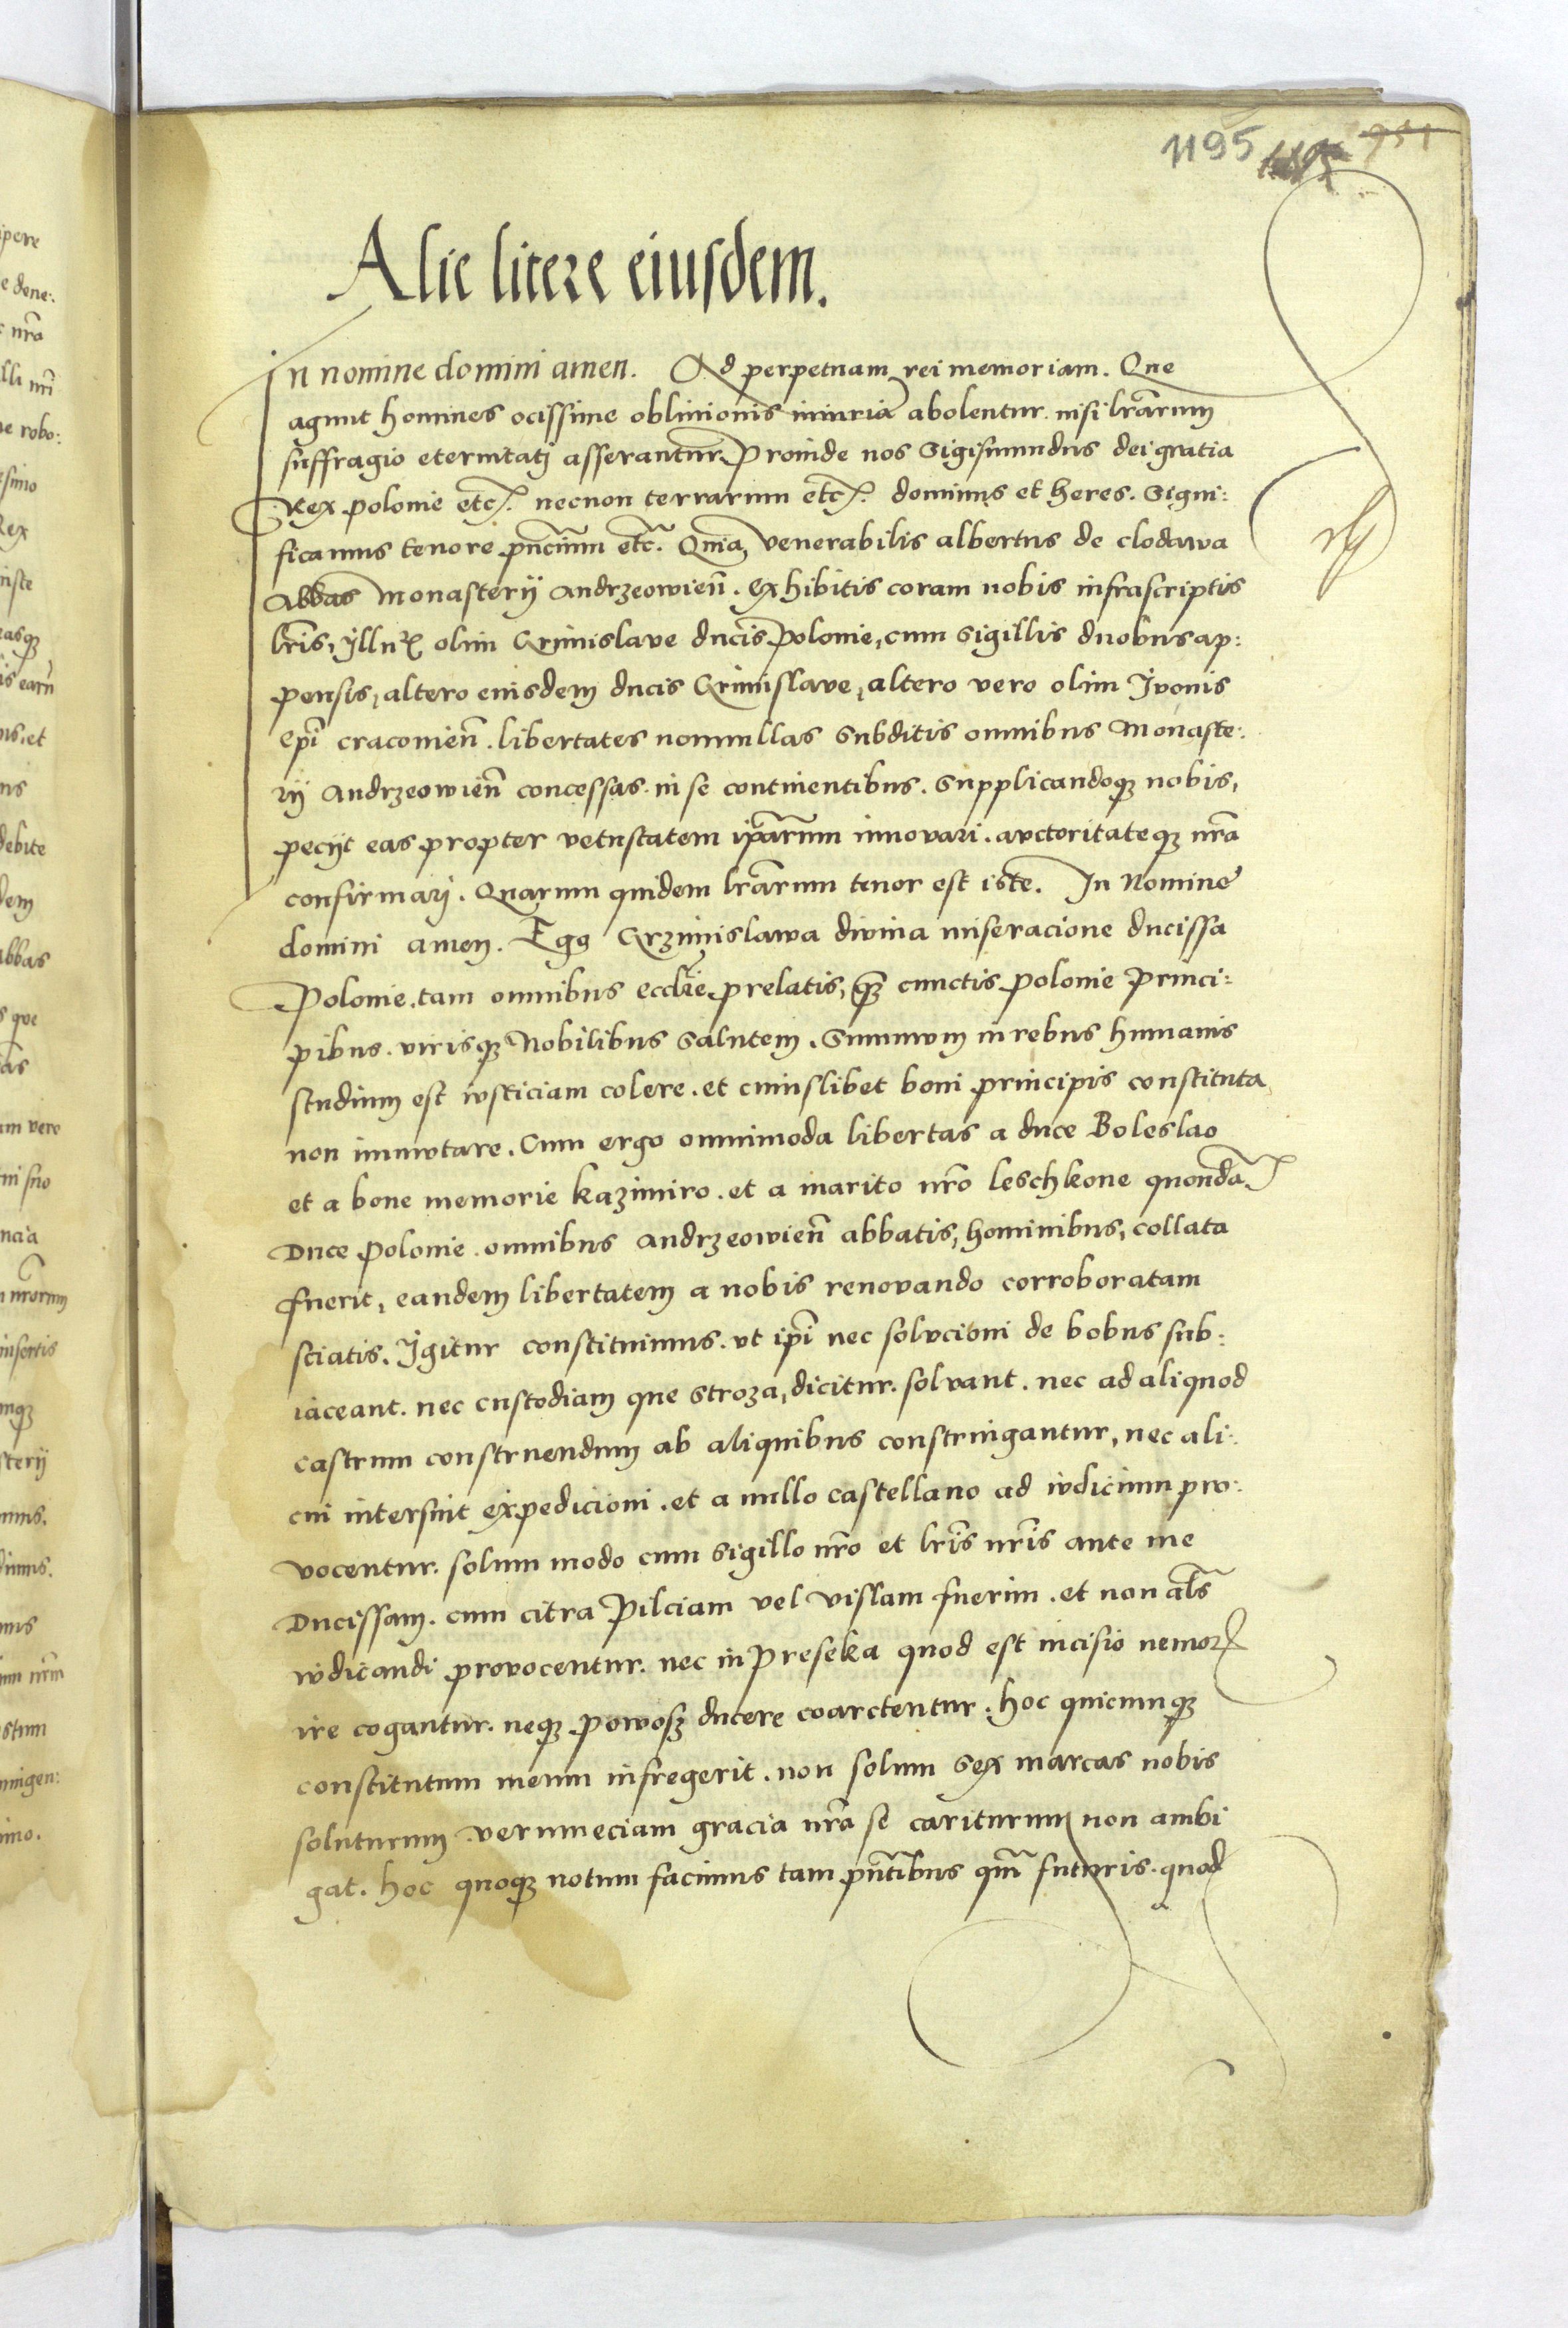 1195 951
Alie litere eiusdem.
In nomine domini amen. Ad perpetuam rei memoriam. Que
agunt homines ocissime obliuionis iniuria abolentur. nisi lrãrum
suffragio eternitatj asserantur. Proinde nos Sigismundus dei gratia
Rex polonie etc̃. necnon terrarum etc̃. dominus et heres. Signi:
ficamus tenore pñcium etc̃. Quia, venerabilis albertus de clodawa
Abbas Monasterij Andrzeowieñ. exhibitis coram nobis infrascriptis
lr̃is, jllur̃ olim Grimislaue ducis Polonie, cum sigillis duobus ap:
pensis, altero eiusdem ducis Grimislaue, altero vero olim Iuonis
epĩ cracouieñ. libertates nonnullas subditis omnibus Monaste:
rij Andrzeowieñ concessas. in se continentibus. Supplicandoqꝫ nobis,
pecijt eas propter vetustatem ip̃arum innouari. auctoritateqꝫ nr̃a
confirmarj. Quarum quidem lrãrum tenor est iste. In Nomine
domini amen. Ego Grzimislawa diuina miseracione ducissa
Polonie. tam omnibus eccl̃ie prelatis, qꝫ cunctis polonie Princi:
pibus. virisqꝫ Nobilibus Salutem. Summum in rebus humanis
studium est iusticiam colere. et cuiuslibet boni principis constituta
non immutare. Cum ergo omnimoda libertas a duce Boleslao
et a bone memorie kazimiro. et a marito nr̃o leschkone quondã
Duce polonie. omnibus andrzeowieñ abbatis, hominibus, collata
fuerit, eandem libertatem a nobis renouando corroboratam
sciatis. Igitur constituimus. vt ip̃i nec solucioni de bobus sub:
iaceant. nec custodiam que stroza, dicitur. soluant. nec ad aliquod
castrum construendum ab aliquibus constringantur, nec ali:
cui intersint expedicioni. et a nullo castellano ad iudicium pro:
vocentur. solum modo cum sigillo nr̃o et lr̃is nr̃is ante me
Ducissam. cum citra Pilciam vel vislam fuerim. et non al̃s
iudicandi prouocentur. nec in Preseka quod est incisio nemor̃
ire cogantur. neqꝫ powosz ducere coarctentur. hoc quicumqꝫ
constitutum meum infregerit. non solum sex marcas nobis
soluturum. verumeciam gracia nr̃a se cariturum non ambi
gat. hoc quoqꝫ notum facimus tam pñtibus qm̃ futuris. quod